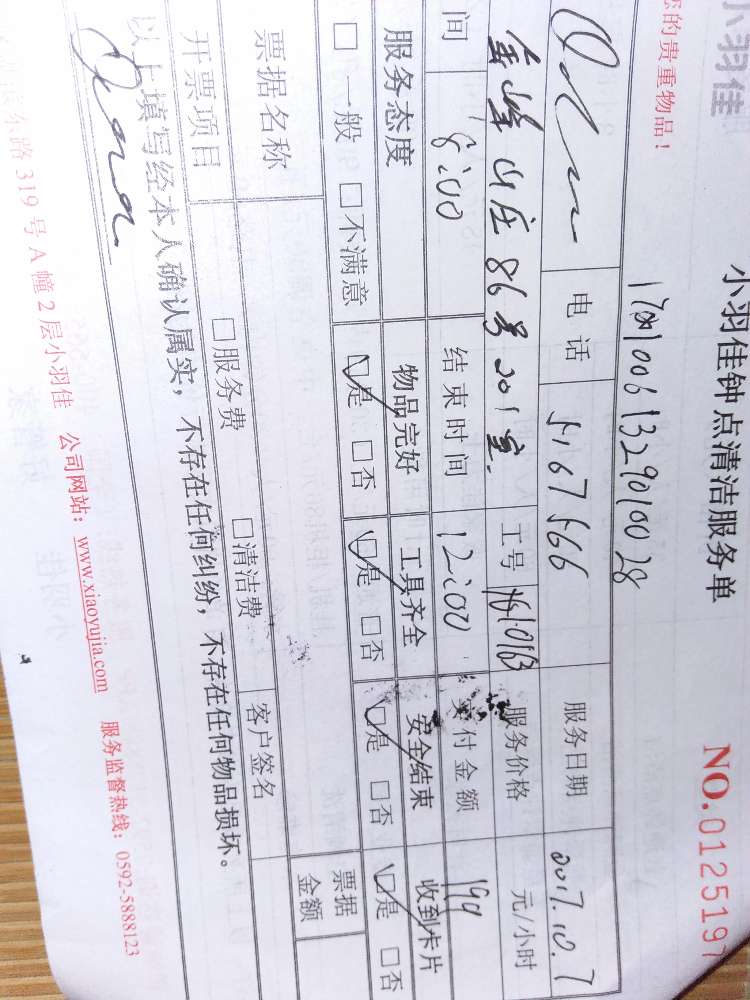 小羽佳
您的贵重物品！
小羽佳钟点清洁服务单
NO.0125197
电话 5167566 服务日期 2017.10.7
金峰山庄86号201室. 工号 服务价格 元/小时
间 8:00 结束时间 12:00 实付金额 199
服务态度 物品完好 工具齐全 安全结束 收到卡片
□一般 □不满意 □是 □否 □是 □否 □是 □否 □是 □否
票据名称 票据金额
开票项目 □服务费 □清洁费 客户签名
以上填写经本人确认属实，不存在任何纠纷，不存在任何物品损坏。
东路319号A幢2层小羽佳 公司网站：www.xiaoyujia.com 服务监督热线：0592-5888123